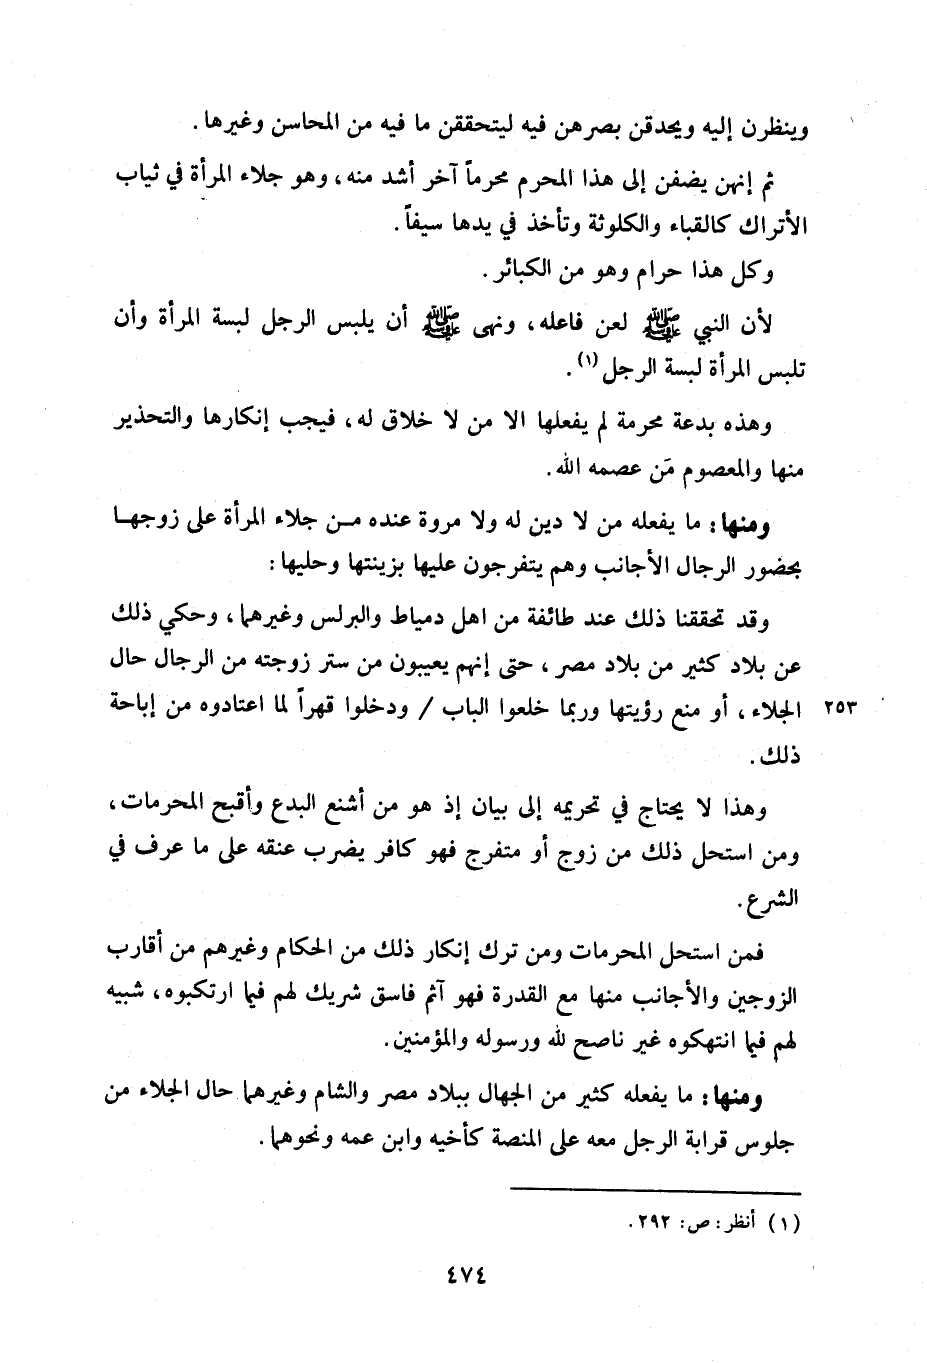 وينظرن إليه ويحدقن بصرهن فيه ليتحققن ما فيه من المحاسن وغيرها .
ثم إنهن يضفن إلى هذا المحرم محرماً آخر أشد منه ، وهو جلاء المرأة في ثياب
الأتراك كالقباء والكلوثة وتأخذ في يدها سيفاً .
وكل هذا حرام وهو من الكبائر .
لأن النبي ﷺ لعن فاعله ، ونهى ﷺ أن يلبس الرجل لبسة المرأة وأن
تلبس المرأة لبسة الرجل (١) .
وهذه بدعة محرمة لم يفعلها الا من لا خلاق له ، فيجب إنكارها والتحذير
منها والمعصوم مَن عصمه الله .
ومنها : ما يفعله من لا دين له ولا مروة عنده مـن جلاء المرأة على زوجهـا
بحضور الرجال الأجانب وهم يتفرجون عليها بزينتها وحليها :
وقد تحققنا ذلك عند طائفة من اهل دمياط والبرلس وغيرهما ، وحكي ذلك
عن بلاد كثير من بلاد مصر ، حتى إنهم يعيبون من ستر زوجته من الرجال حال
٢٥٣ الجلاء ، أو منع رؤيتها وربما خلعوا الباب / ودخلوا قهراً لما اعتادوه من إباحة
ذلك .
وهذا لا يحتاج في تحريمه إلى بيان إذ هو من أشنع البدع وأقبح المحرمات ،
ومن استحل ذلك من زوج أو متفرج فهو كافر يضرب عنقه على ما عرف في
الشرع .
فمن استحل المحرمات ومن ترك إنكار ذلك من الحكام وغيرهم من أقارب
الزوجين والأجانب منها مع القدرة فهو آثم فاسق شريك لهم فيما ارتكبوه ، شبيه
لهم فيما انتهكوه غير ناصح لله ورسوله والمؤمنين .
ومنها : ما يفعله كثير من الجهال ببلاد مصر والشام وغيرهما حال الجلاء من
جلوس قرابة الرجل معه على المنصة كأخيه وابن عمه ونحوهما .
(١) أنظر : ص : ٢٩٢ .
٤٧٤